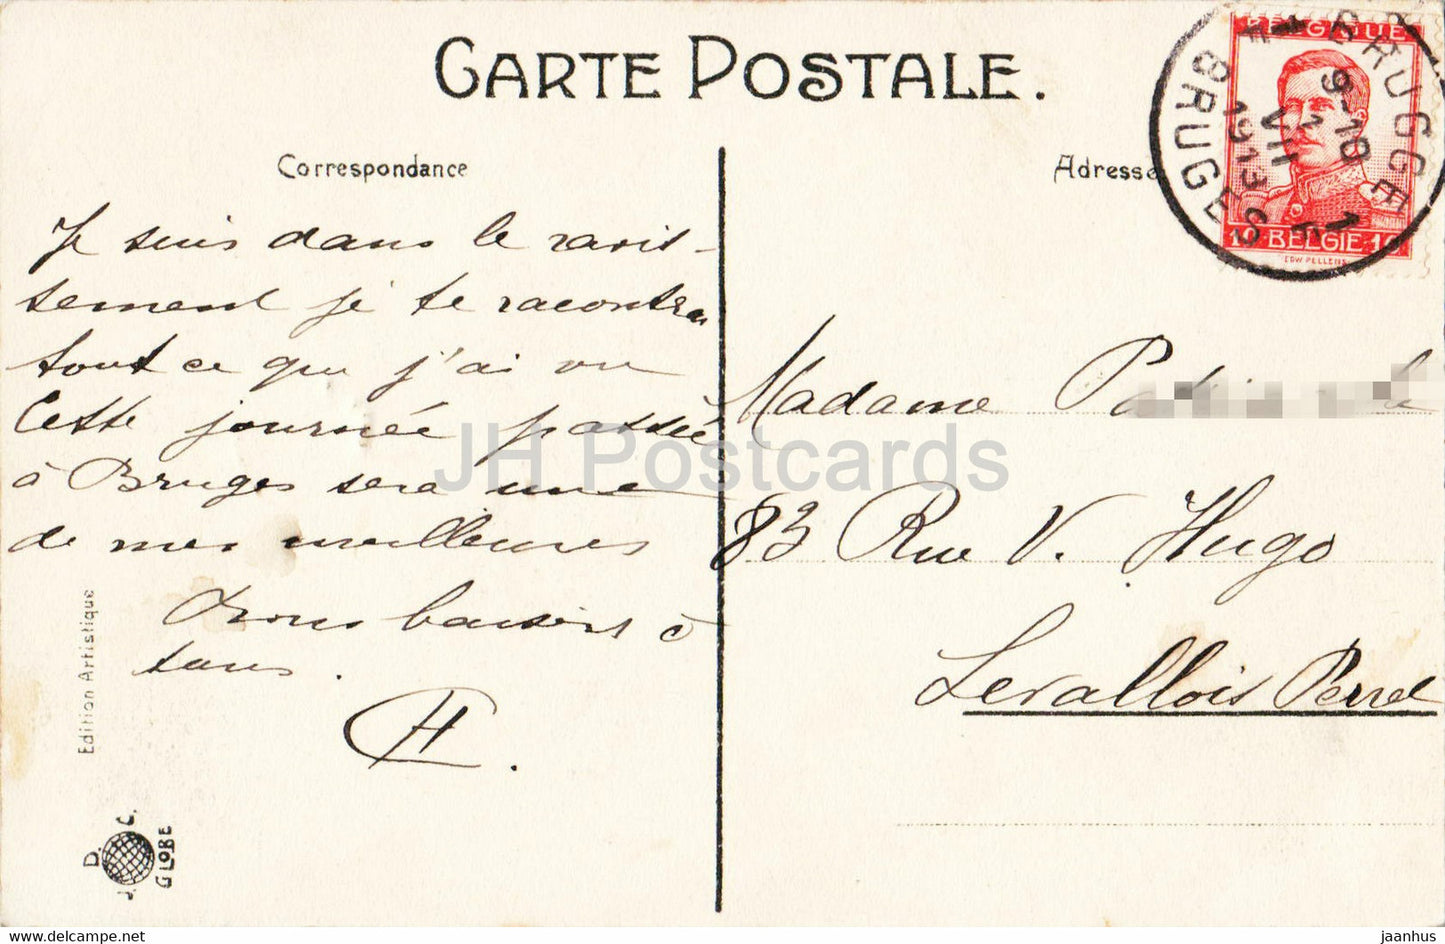 CARTE POSTALE.
Correspondance
Adresse
BELGIQUE
BRUGGE
9-10
1
VII
1913
BRUGES
1 F
10 BELGIE 10
EDW PELLENS
Je suis dans le ravis-
sement je te raconterai
tout ce que j'ai vu
Cette journée passée
à Bruges sera une
de mes meilleures
Bons baisers à
tous.
H.
Madame
83 Rue V. Hugo
Levallois Perret
Edition Artistique
D.
J. C.
GLOBE
JH Postcards
https://www.hippostcard.com/store/jaanhus
jaanhus